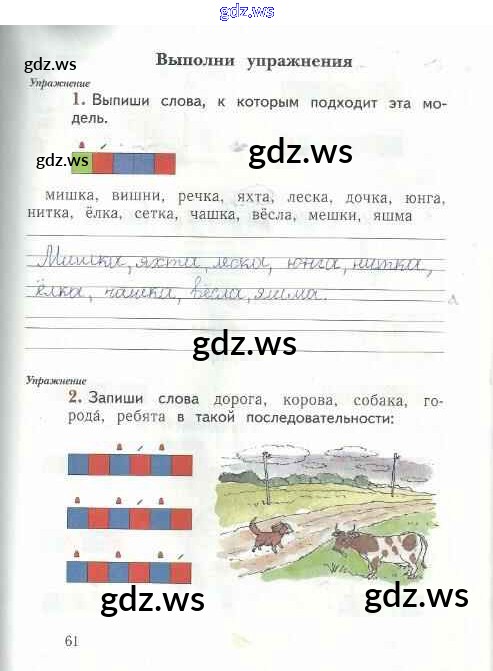 gdz.ws
Выполни упражнения
gdz.ws
Упражнение
1. Выпиши слова, к которым подходит эта мо-
дель.
gdz.ws
gdz.ws
мишка, вишни, речка, яхта, леска, дочка, юнга,
нитка, ёлка, сетка, чашка, вёсла, мешки, яшма
Мишка, яхта, леска, юнга, нитка,
ёлка, чашка, вёсла, яшма.
gdz.ws
Упражнение
2. Запиши слова дорога, корова, собака, го-
рода́, ребята в такой последовательности:
gdz.ws
gdz.ws
61